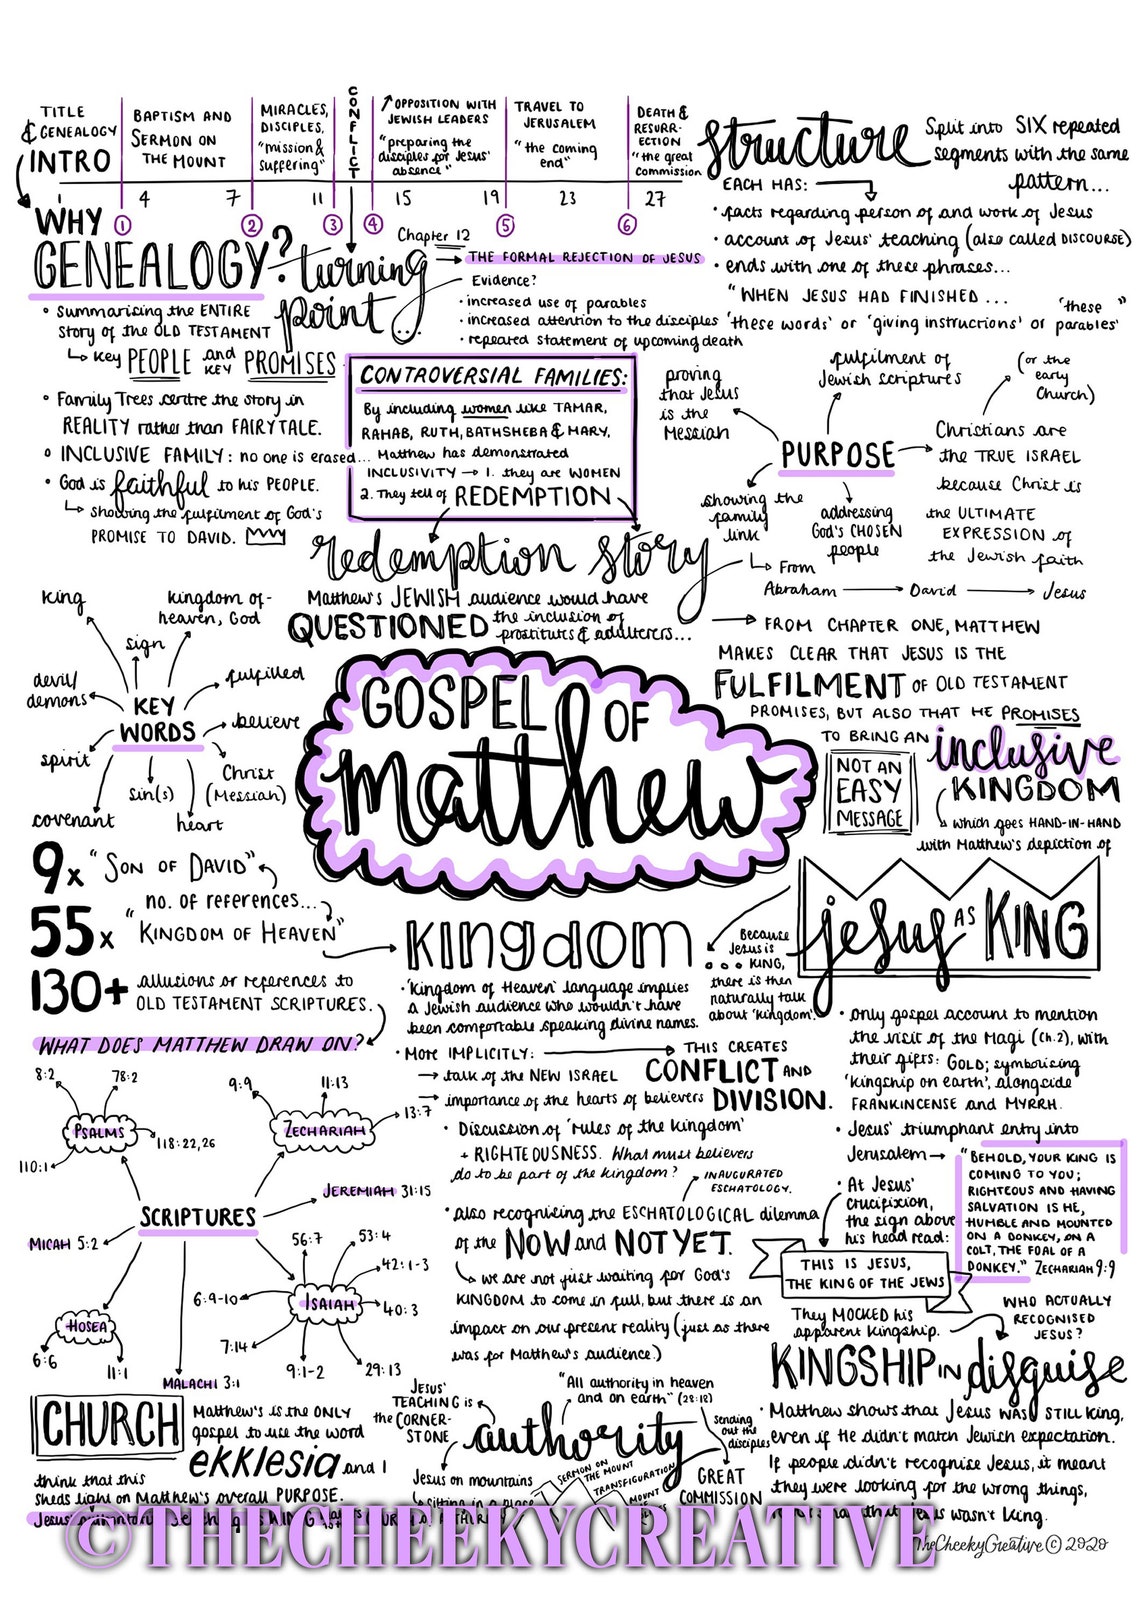 TITLE
& GENEALOGY
INTRO
BAPTISM AND
SERMON ON
THE MOUNT
MIRACLES,
DISCIPLES,
"mission &
suffering"
CONFLICT
OPPOSITION WITH
JEWISH LEADERS
"preparing the
disciples for Jesus'
absence"
TRAVEL TO
JERUSALEM
"the coming
end"
DEATH &
RESURR-
ECTION
"the great
commission
4 7 11 15 19 23 27
1 2 3 4 5 6
structure
Split into SIX repeated
segments with the same
pattern...
EACH HAS:
• facts regarding person of and work of Jesus
• account of Jesus' teaching (also called DISCOURSE)
• ends with one of these phrases...
"WHEN JESUS HAD FINISHED...
'these words' or 'giving instructions' or 'these parables'"
WHY
GENEALOGY?
• Summarising the ENTIRE
story of the OLD TESTAMENT
↳ key PEOPLE and KEY PROMISES
• Family Trees centre the story in
REALITY rather than FAIRYTALE.
• INCLUSIVE FAMILY: no one is erased...
• God is faithful to his PEOPLE.
↳ showing the fulfilment of God's
PROMISE TO DAVID.
turning
point
Chapter 12
→ THE FORMAL REJECTION OF JESUS
Evidence?
• increased use of parables
• increased attention to the disciples
• repeated statement of upcoming death
CONTROVERSIAL FAMILIES:
By including women like TAMAR,
RAHAB, RUTH, BATHSHEBA & MARY,
Matthew has demonstrated
INCLUSIVITY → 1. they are WOMEN
2. They tell of REDEMPTION
redemption story
Matthew's JEWISH audience would have
QUESTIONED the inclusion of
prostitutes & adulterers...
PURPOSE
proving
that Jesus
is the
Messiah
fulfilment of
Jewish scriptures
(or the
early
Church)
Christians are
the TRUE ISRAEL
because Christ is
the ULTIMATE
EXPRESSION of
the Jewish faith
addressing
God's CHOSEN
people
showing the
family
link
↳ From
Abraham → David → Jesus
→ FROM CHAPTER ONE, MATTHEW
MAKES CLEAR THAT JESUS IS THE
FULFILMENT OF OLD TESTAMENT
PROMISES, BUT ALSO THAT HE PROMISES
TO BRING AN inclusive
KINGDOM
NOT AN
EASY
MESSAGE
which goes HAND-IN-HAND
with Matthew's depiction of
KEY
WORDS
king
kingdom of-
heaven, God
sign
fulfilled
devil/
demons
believe
spirit
Christ
(Messiah)
sin(s)
covenant
heart
GOSPEL OF
Matthew
9x "SON OF DAVID"
no. of references...
55x "KINGDOM OF HEAVEN"
130+ allusions or references to
OLD TESTAMENT SCRIPTURES.
WHAT DOES MATTHEW DRAW ON?
SCRIPTURES
PSALMS
8:2
78:2
118:22,26
110:1
ZECHARIAH
9:9
11:13
13:7
JEREMIAH 31:15
MICAH 5:2
ISAIAH
56:7
53:4
42:1-3
40:3
29:13
9:1-2
7:14
6:9-10
HOSEA
6:6
11:1
MALACHI 3:1
kingdom
• 'Kingdom of Heaven' language implies
a Jewish audience who wouldn't have
been comfortable speaking divine names.
• More IMPLICITLY: → THIS CREATES
→ talk of the NEW ISRAEL
CONFLICT AND
→ importance of the hearts of believers
DIVISION.
• Discussion of 'rules of the kingdom'
+ RIGHTEOUSNESS. What must believers
do to be part of the kingdom?
INAUGURATED
ESCHATOLOGY.
• also recognising the ESCHATOLOGICAL dilemma
of the NOW and NOT YET.
↳ we are not just waiting for God's
KINGDOM to come in full, but there is an
impact on our present reality (just as there
was for Matthew's audience.)
Because
Jesus is
... KING,
there is then
naturally talk
about 'kingdom'.
jesus AS KING
• only gospel account to mention
the visit of the Magi (Ch.2), with
their gifts: GOLD; symbolising
'kingship on earth', alongside
FRANKINCENSE and MYRRH.
• Jesus' triumphant entry into
Jerusalem →
"BEHOLD, YOUR KING IS
COMING TO YOU;
RIGHTEOUS AND HAVING
SALVATION IS HE,
HUMBLE AND MOUNTED
ON A DONKEY, ON A
COLT, THE FOAL OF A
DONKEY." ZECHARIAH 9:9
• At Jesus'
crucifixion,
the sign above
his head read:
THIS IS JESUS,
THE KING OF THE JEWS
They MOCKED his
apparent kingship.
WHO ACTUALLY
RECOGNISED
JESUS?
KINGSHIP IN disguise
• Matthew shows that Jesus WAS STILL king,
even if He didn't match Jewish expectation.
If people didn't recognise Jesus, it meant
they were looking for the wrong things,
that Jesus wasn't king.
CHURCH
Matthew's is the ONLY
gospel to use the word
ekklesia and I
think that this
sheds light on Matthew's overall PURPOSE.
authority
JESUS'
TEACHING is
the CORNER-
STONE
"All authority in heaven
and on earth" (28:18)
sending
out the
disciples
GREAT
COMMISSION
Jesus on mountains
SERMON ON
THE MOUNT
TRANSFIGURATION
MOUNT
©THECHEEKYCREATIVE
TheCheekyCreative © 2020